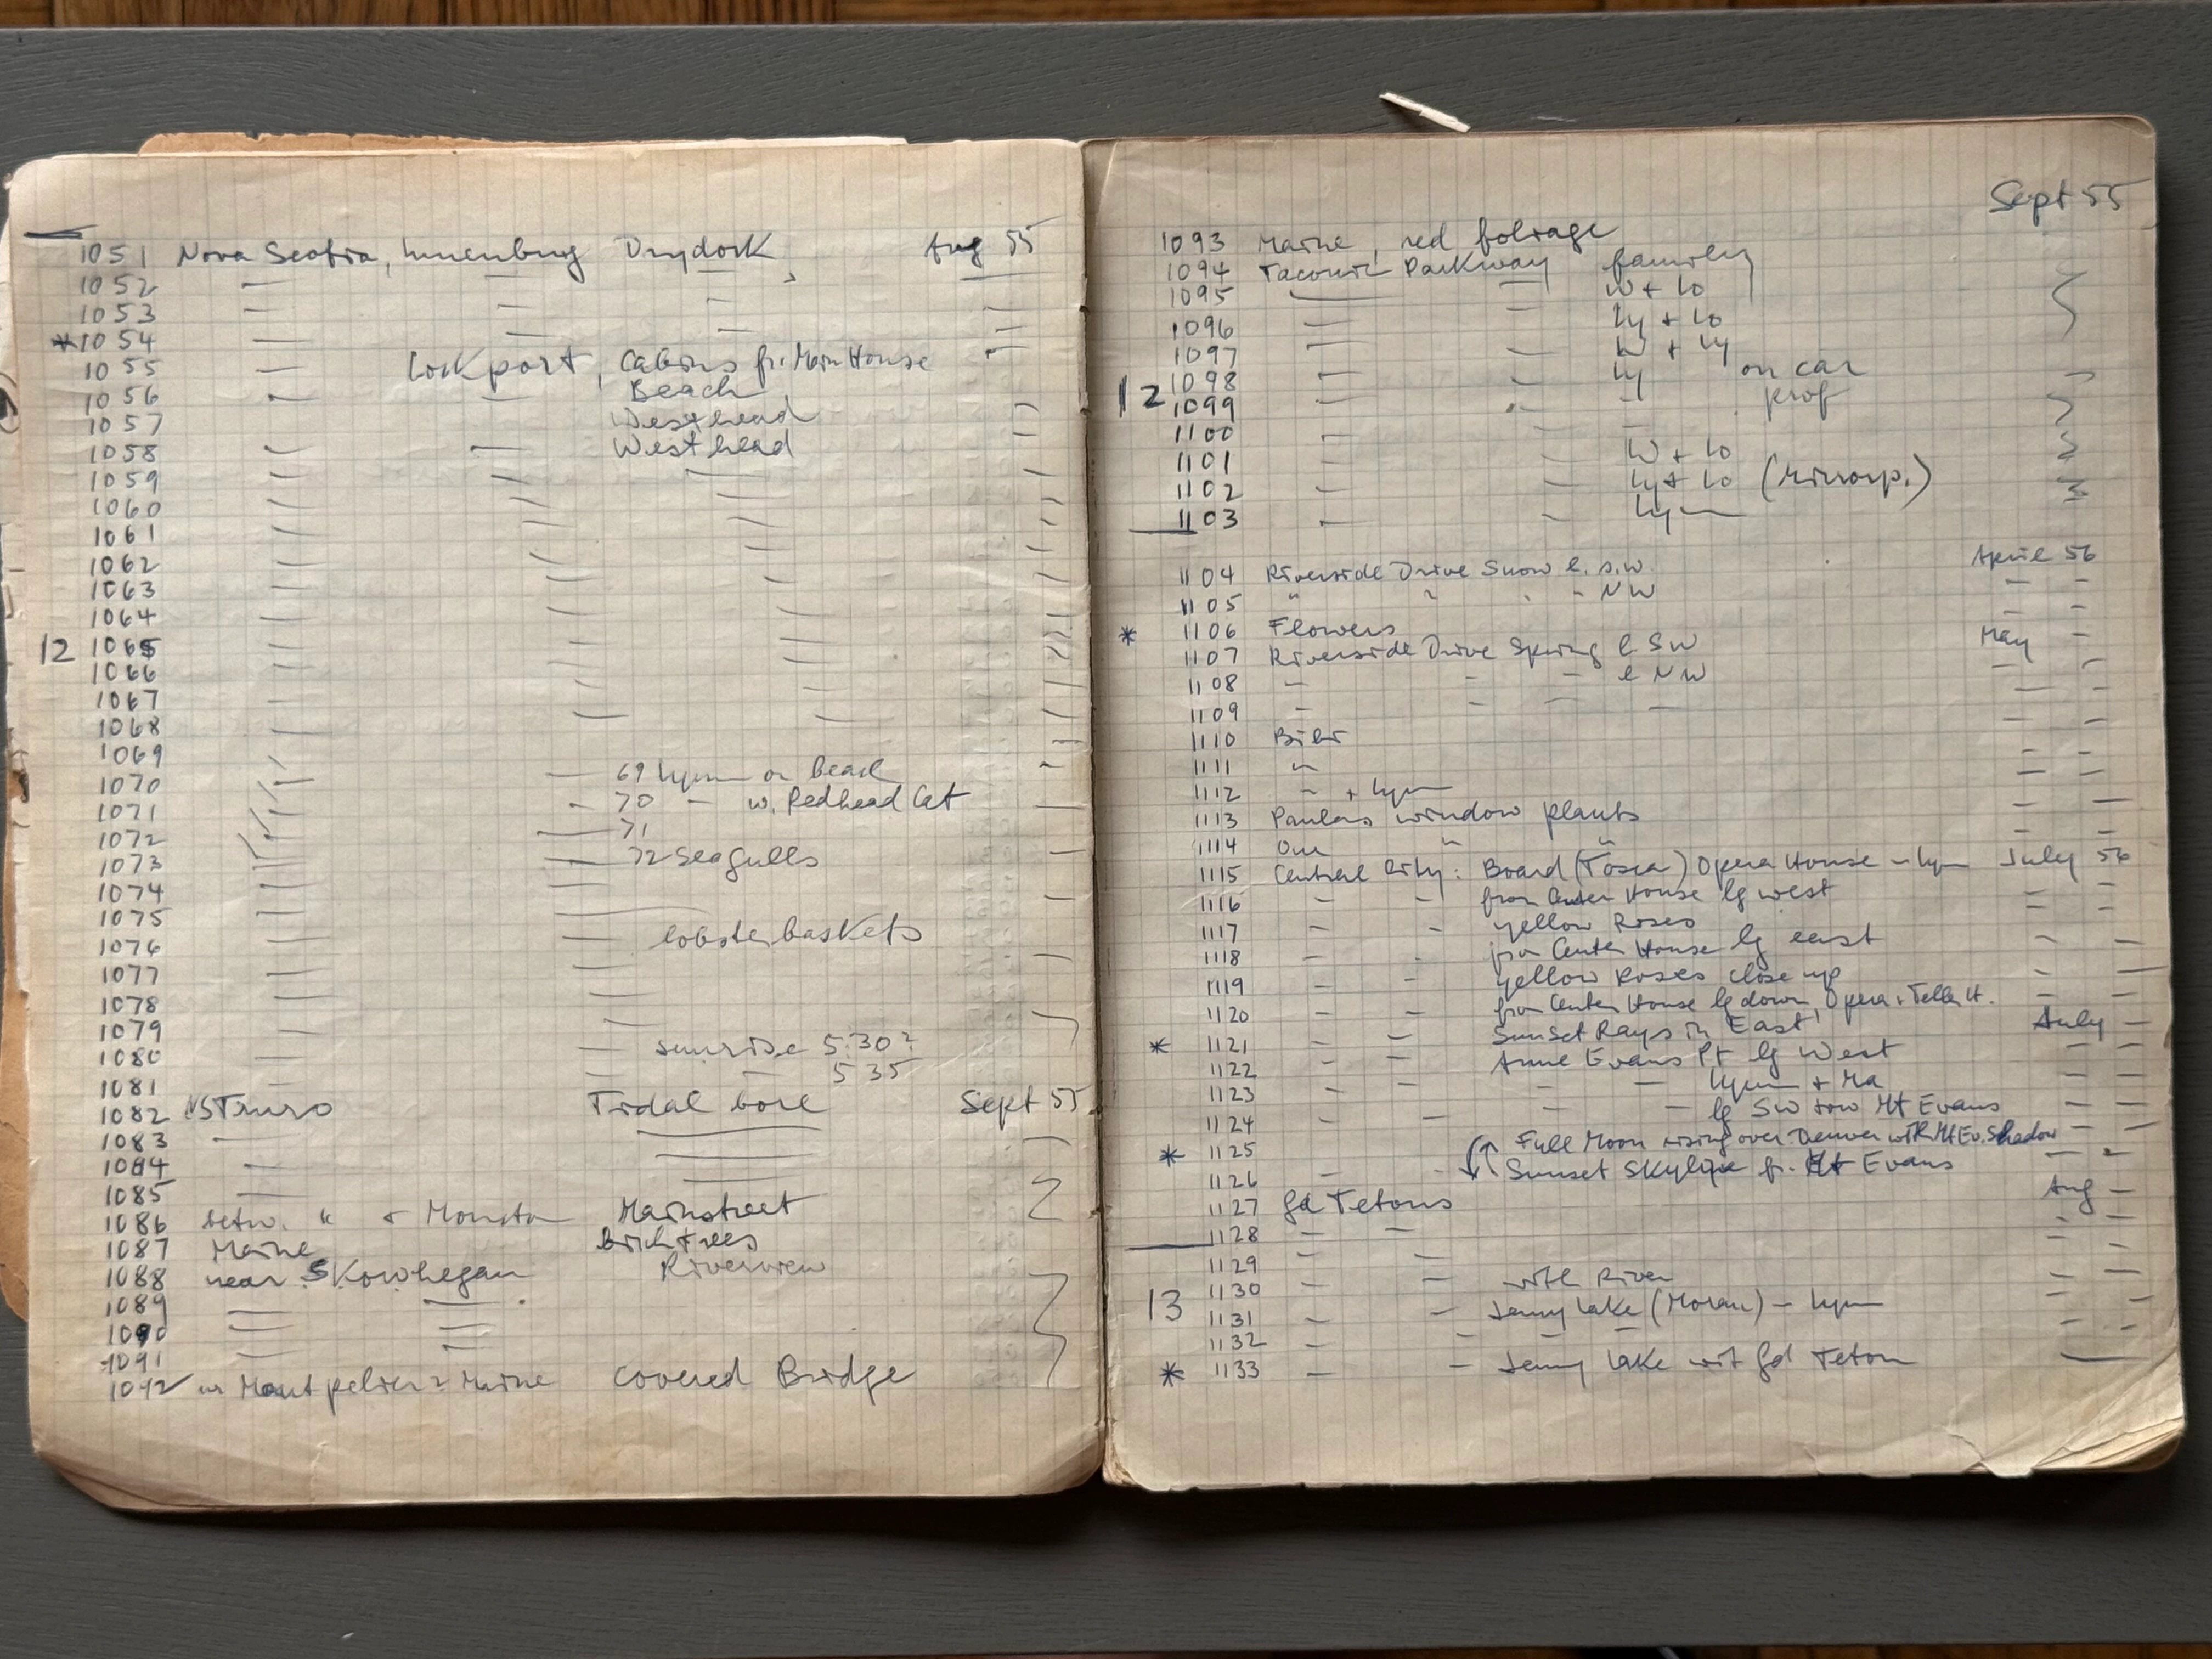 1051 Nova Scotia, Lunenburg Drydock, Aug 55
1052 — — —
1053 — — — —
*1054 — — — —
1055 — Lockport, Cabins fr. Main House
1056 — — Beach
1057 Westhead —
1058 — — Westhead —
1059 — — — —
1060 — — — —
1061 — — — —
1062 — — — —
1063 — — — —
1064 — — — —
12 1065 — — — —
1066 — — — —
1067 — — — —
1068 — — — —
1069
1070 — — 69 Lynn on beach
1071 — — 70 — w. Redhead Cat
1072 — 71
1073 — — 72 Seagulls
1074 — —
1075 — —
1076 — — lobsterbaskets
1077 — —
1078 — —
1079 — —
1080 — — sunrise 5.30?
1081 — — — 5 35
1082 NS Truro Tidal bore Sept 55
1083 — —
1084 — —
1085 — —
1086 betw. " + Mainstreet
1087 Maine birch trees
1088 near Skowhegan Riverview
1089 — —
1090 — —
1091 — —
1092 Montpelier? Maine covered Bridge
Sept 55
1093 Maine, red foliage
1094 Taconic Parkway family
1095 — — W + Lo
1096 — — Ly + Lo
1097 — — W + Ly
1098 — — Ly on car
12 1099 — — — prof
1100 — — —
1101 — — W + Lo
1102 — — Ly + Lo
1103 — — Ly —
1104 Riverside Drive Snow l. S.W. April 56
1105 " " " - NW — —
* 1106 Flowers — —
1107 Riverside Drive Spring l SW May —
1108 — — — l NW — —
1109 — — — — — —
1110 —
1111 " — —
1112 " + Lynn — —
1113 Paulas window plants — —
1114 Our " " — —
1115 Central City: Board (Tosca) Opera House - Lyn July 56
1116 — — from Center House lg west — —
1117 — — yellow Roses — —
1118 — — from Center House lg east — —
1119 — — yellow Roses close up — —
1120 — — from Center House lg down, Opera + Teller H. — —
* 1121 — — Sunset Rays in East July —
1122 — — Anne Evans Pt lg West — —
1123 — — — — Lynn + Ma — —
1124 — — — — lg SW tow Mt Evans — —
* 1125 Full Moon rising over Denver with Mt Ev. Shadow — —
1126 — — Sunset Skyline fr. Mt Evans
1127 Gd Tetons Aug —
1128 — — — —
1129 — — — —
1130 — — with River — —
13 1131 — — Jenny Lake (Moran) - Lynn — —
1132 — — — — — —
* 1133 — — Jenny Lake wit Gd Teton —